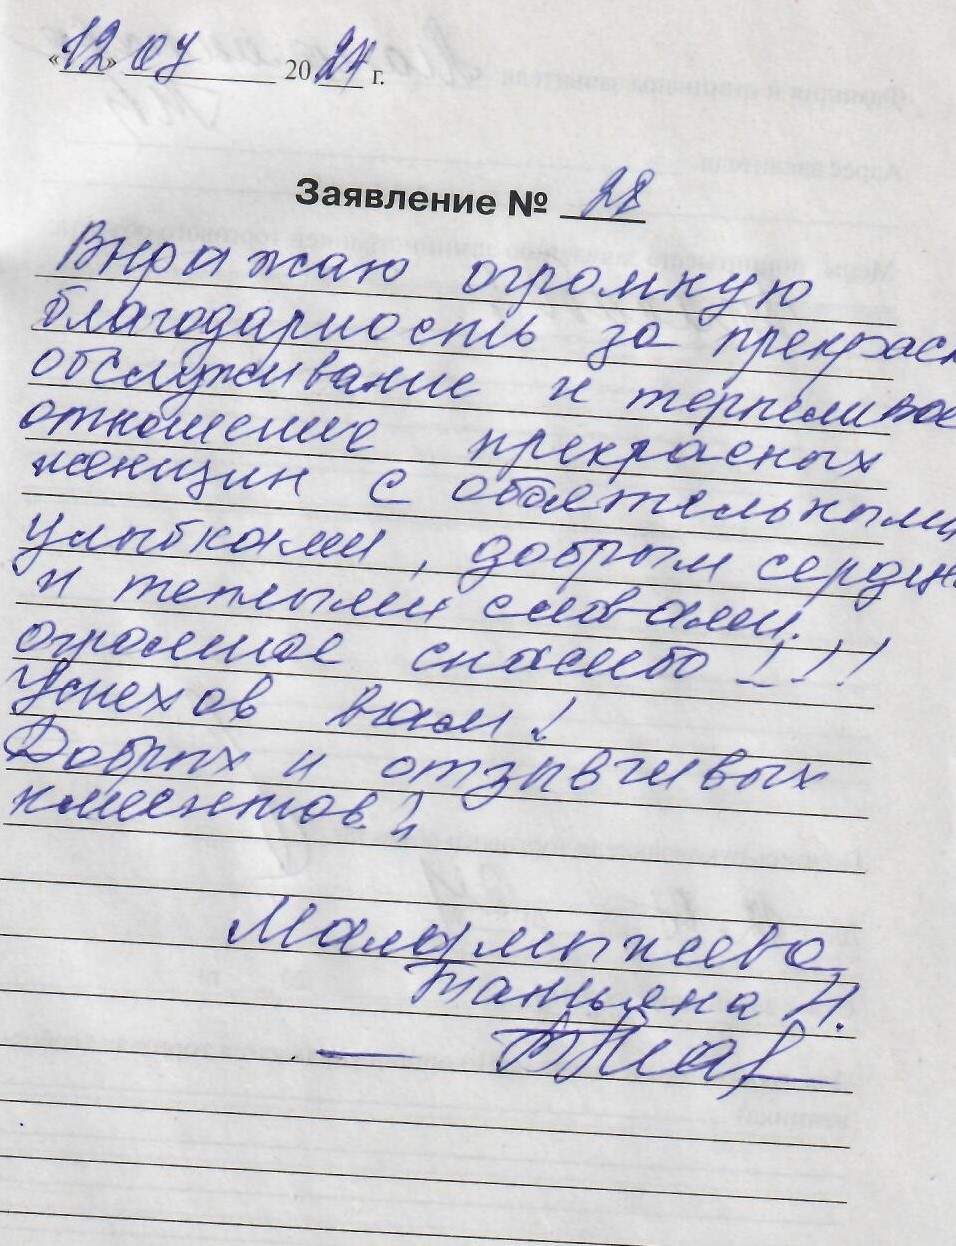 «12» 07 2024 г.
Заявление № 28
Выражаю огромную
благодарность за прекрасн
обслуживание и терпеливое
отношение прекрасных
женщин с обоятельными
улыбками, добрым сердц
и теплыми словами.
огромное спасибо!!!
Успехов вам!
Добрых и отзывчивых
клиентов!
Маламыжева
Татьяна Н.